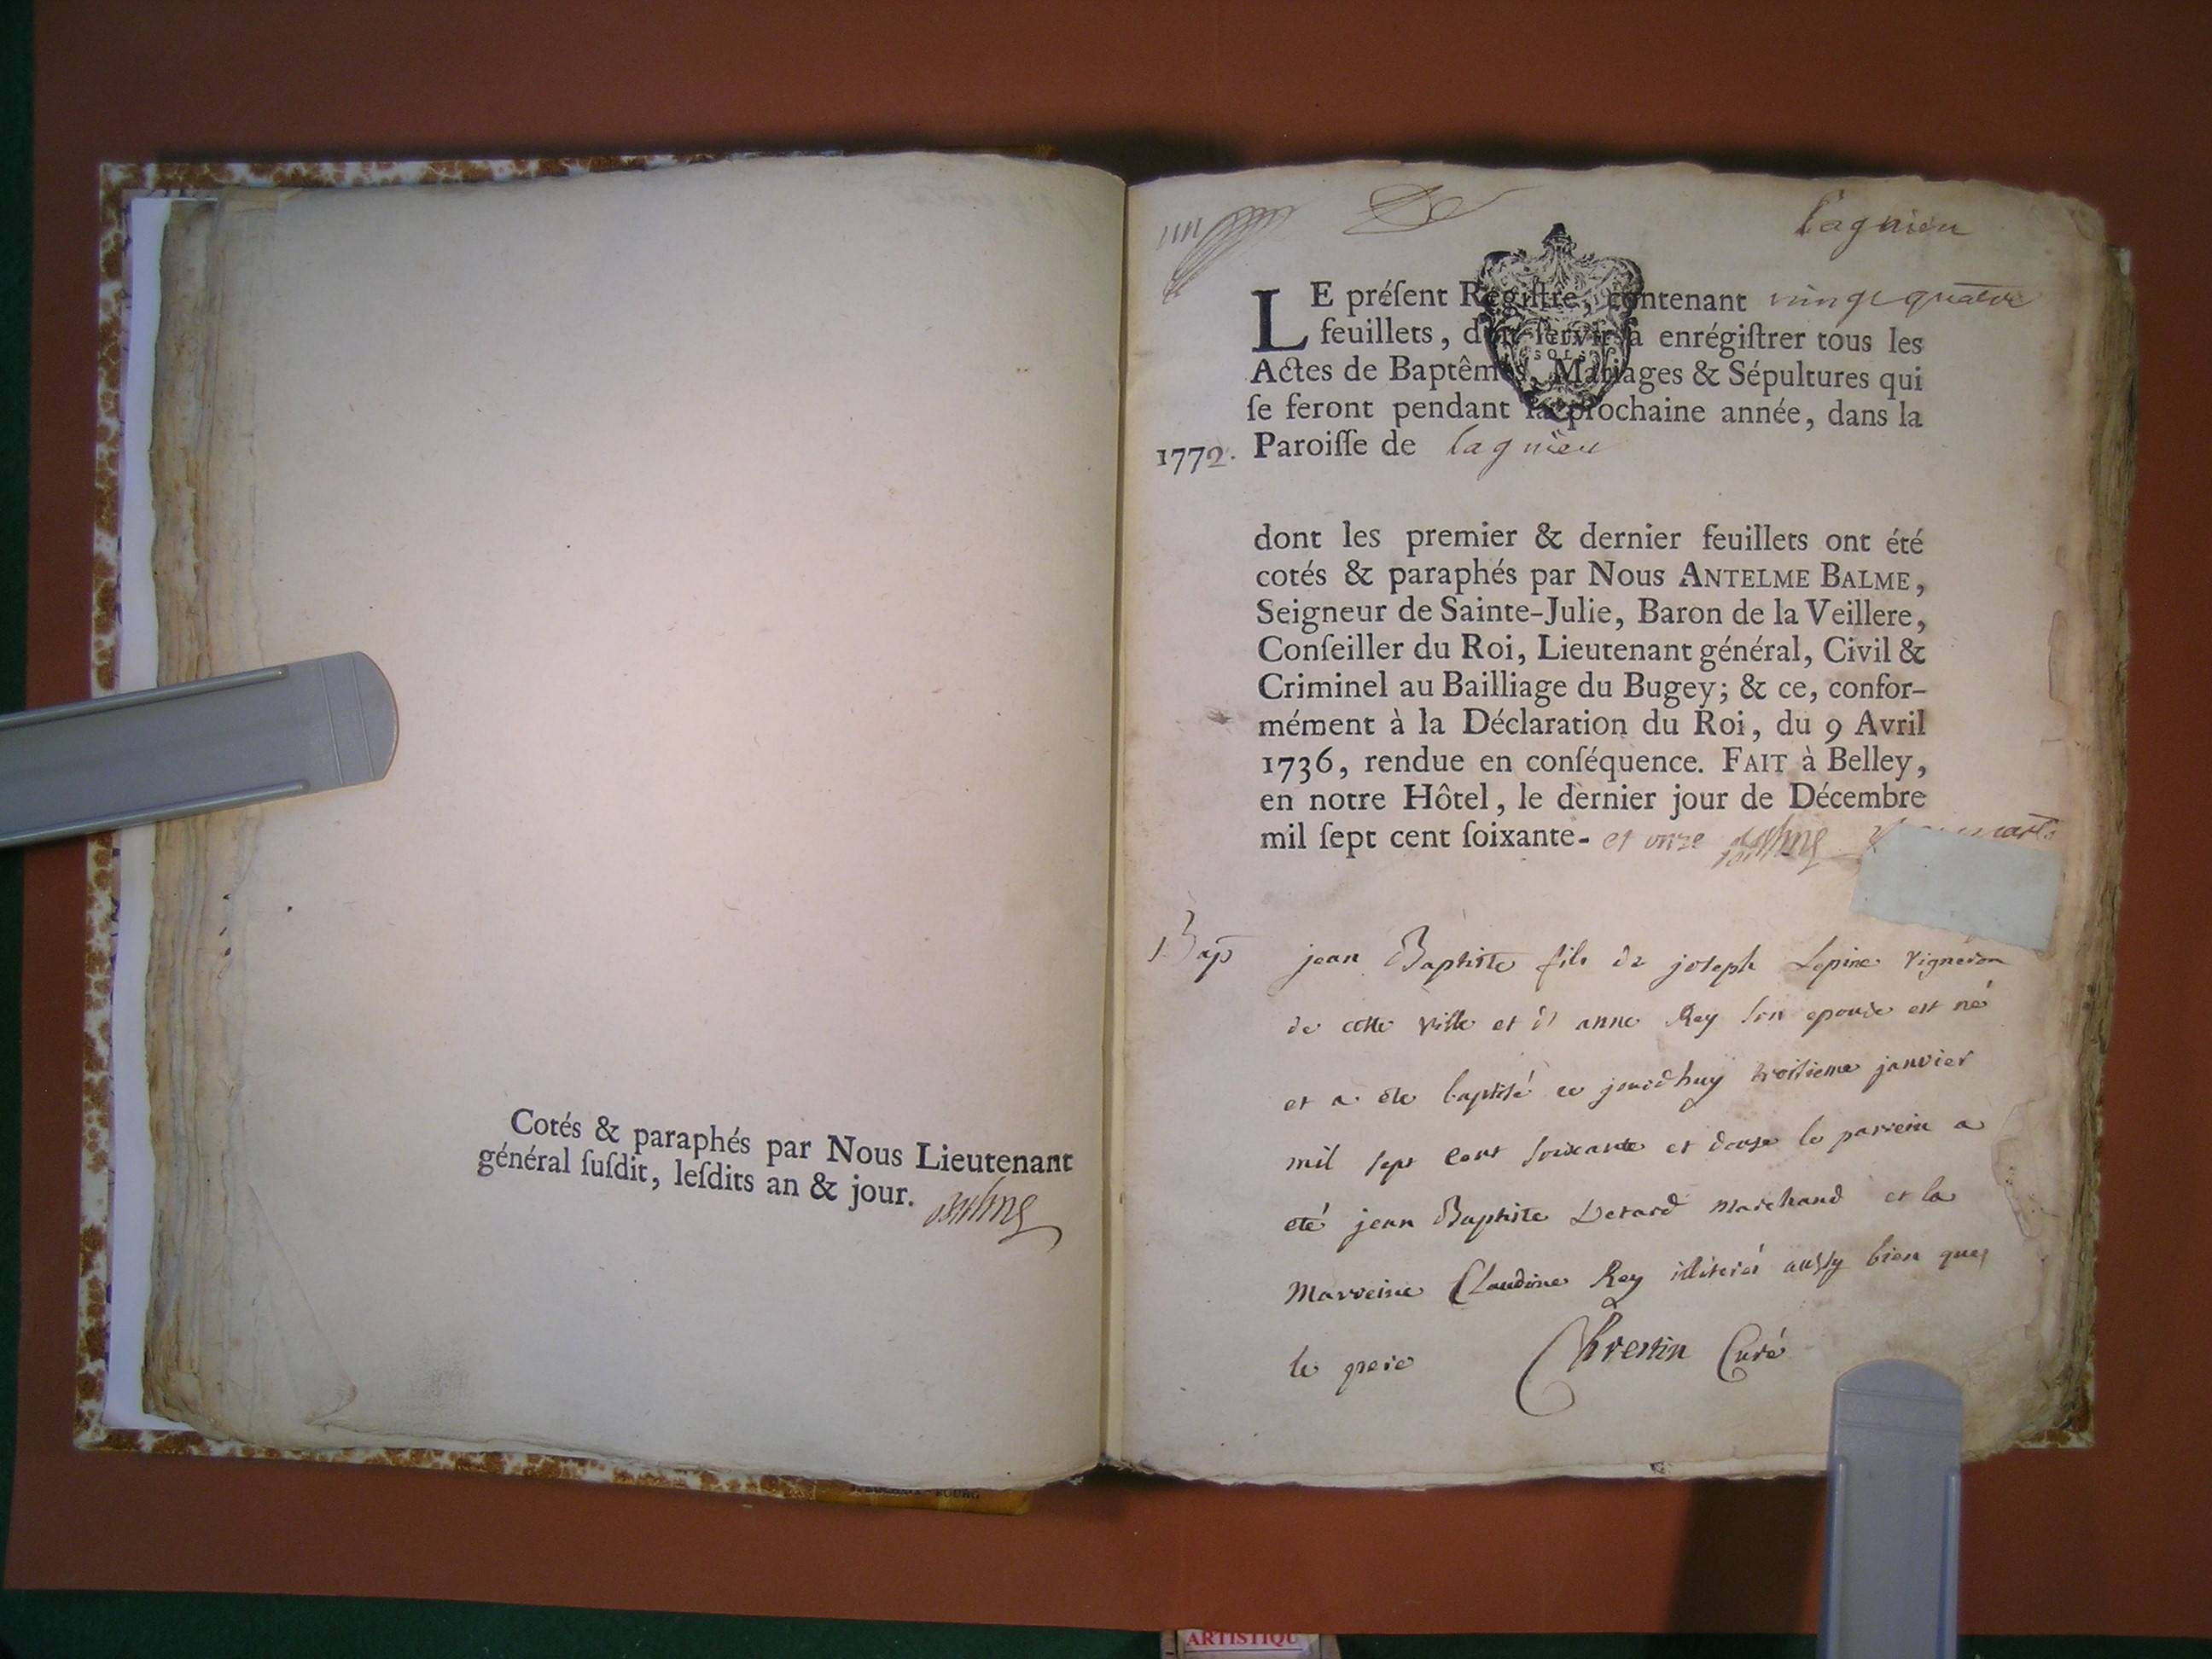 Cotés & paraphés par Nous Lieutenant
général ſuſdit, leſdits an & jour.
Balme
lagnieu
LE préſent Regiſtre, contenant vingt quatre
feuillets, doit ſervir à enrégiſtrer tous les
Actes de Baptêmes, Mariages & Sépultures qui
ſe feront pendant la prochaine année, dans la
1772. Paroiſſe de lagnieu
dont les premier & dernier feuillets ont été
cotés & paraphés par Nous ANTELME BALME,
Seigneur de Sainte-Julie, Baron de la Veillere,
Conſeiller du Roi, Lieutenant général, Civil &
Criminel au Bailliage du Bugey; & ce, confor-
mément à la Déclaration du Roi, du 9 Avril
1736, rendue en conſéquence. FAIT à Belley,
en notre Hôtel, le dernier jour de Décembre
mil ſept cent ſoixante- et onze Balme
Bap jean Baptiste fils de joseph Lepine vigneron
de cette ville et d'anne Rey son epouse est né
et a ete baptisé ce jourdhuy troisieme janvier
mil sept cent soixante et douze le parrein a
eté jean Baptiste Derard marchand et la
marreine Claudine Rey illiterés aussy bien que
le pere Chrestin Curé
ARTISTIQU